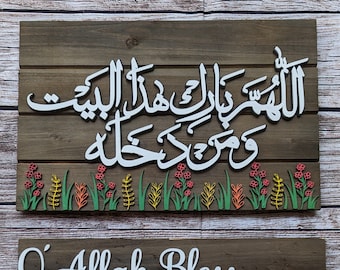 اللّٰهُمَّ بَارِك هٰذَا البَيْت
وَمَنْ دَخَلَه
O' Allah Bless